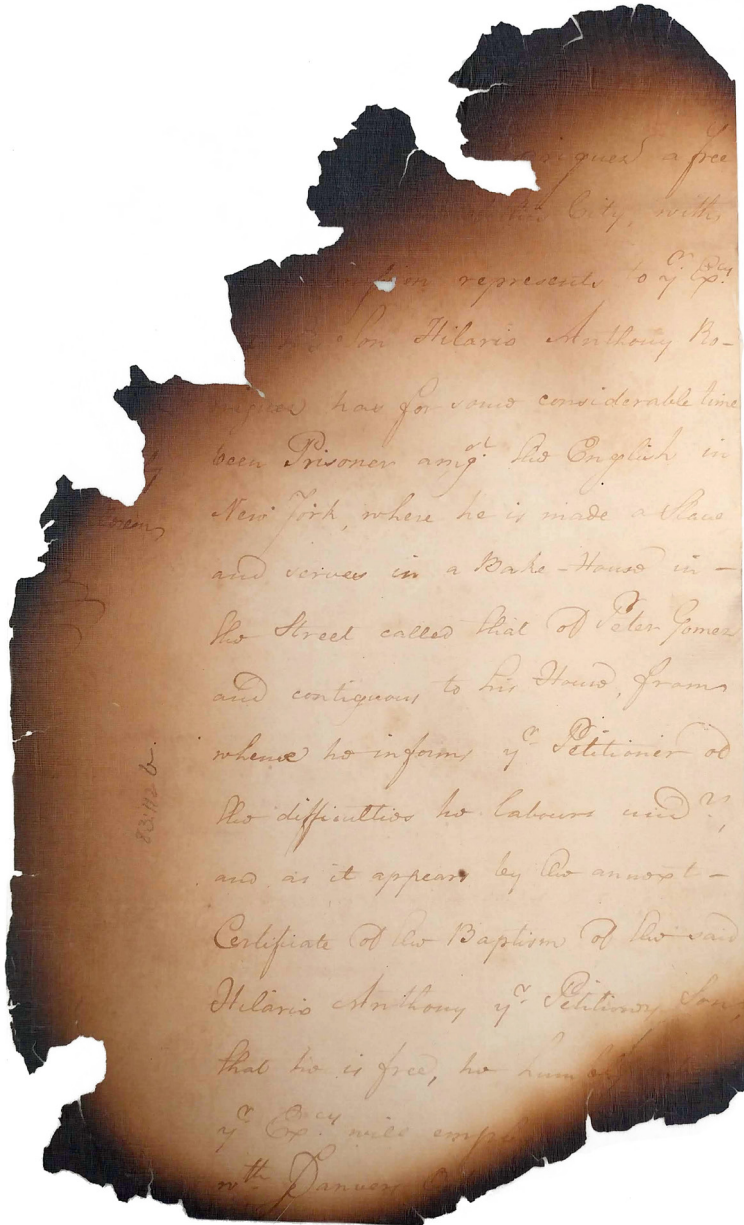 a free
this City, with
represents to yr. Excy.
Son Hilario Anthony Ro-
has for some considerable time
been Prisoner amgst. the English in
New York, where he is made a Slave
and serves in a Bake-House in -
the Street called that of Peter Gomez
and contiguous to his House, from
whence he informs yr. Petitioner of
the difficulties he labours undr.,
and as it appears by the annext -
Certificate of the Baptism of the said
Hilario Anthony yr. Petitioners Son,
that he is free, he
yr. Excy. will
wth. Danvers
83:172 b.